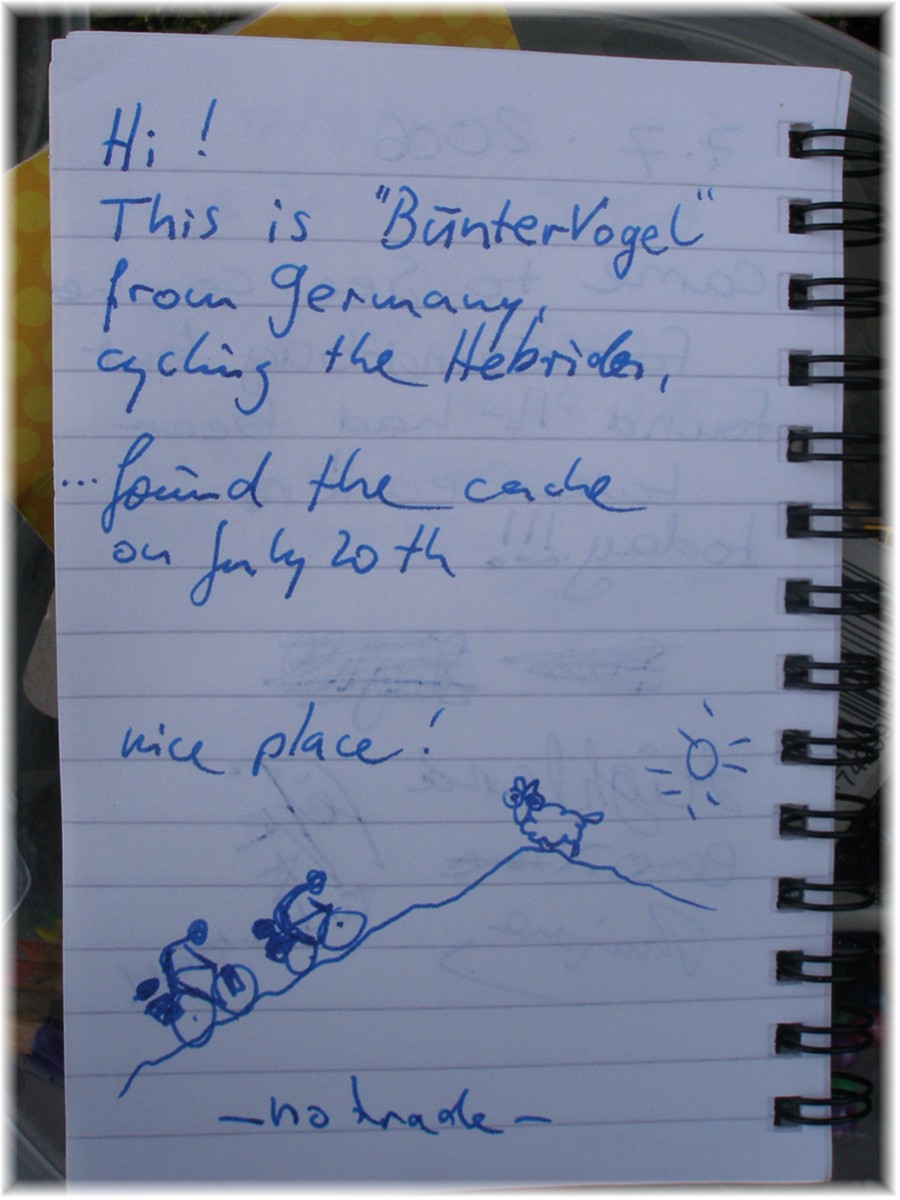 Hi !
This is "BunterVogel"
from Germany,
cycling the Hebriden,
... found the cache
on July 20th
nice place !
- no trade -